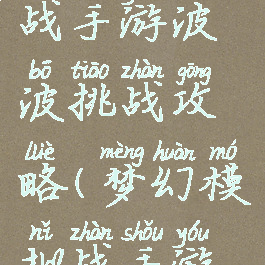 战手游波
bō tiāo zhàn gōng
波挑战攻
lüè mèng huàn mó
略(梦幻模
nǐ zhàn shǒu yóu
拟战手游